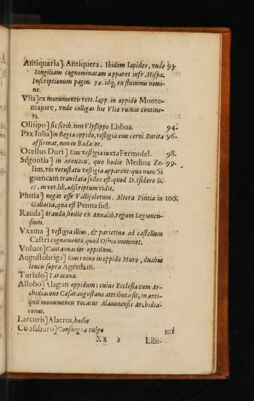 Antiquaria] Antiquera. Ibidem lapides, vnde 93.
Singiliam cognominatam apparet insr. Hispa.
Inscriptionum pagin. 74. idq; ex fluminis nomi-
ne.
Vlia] ex monumentis vett. lapp. in oppido Monte-
majore, vnde colligas hic Vlia ruinis contine-
ri.
Olisipo] sic scrib. non Vlysippo Lisboa. 94.
Pax Iulia] in Begia oppido, vestigia eius cerni Surita 96.
affirmat, non in Badajoz.
Ocellus Duri] Eius vestigia iuxta Fermosel. 98.
Segontia] in Medina Ze- 99.
lim, vbi vetustatu vestigia apparent: qua nunc Si
guencam translata sedes est: quod D. Isidoro li.
15. in vet. lib. adscriptum vidit.
Pintia] nunc est Vallisoletum. Altera Pintia in 100.
Galæcia, qua est Pennafiel.
Rauda] Aranda, hodie ex Annalib. regum Legionen-
sium.
Vxama] vestigia illius, & parietina ad castellum
Castri cognomento, quod Osma monet.
Voluce] Cantanacior oppidum.
Augustobriga] Eius ruina in oppido Muro, duabus
leucis supra Agredam.
Turiaso] Taracona.
Allobo] Alagon oppidum: cuius Ecclesia cum Ar-
chidiacono Cæsaraugustano attributa sit, in anti-
quis monumentis vocatur Alauonensis Archidia-
conus.
Larcuris] Alacros, hodie
Consaburo] Consuegra vulgo 101
X x 2 Libi-